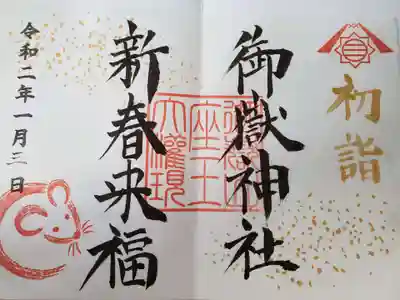 初詣
御嶽神社
新春来福
令和二年一月三日